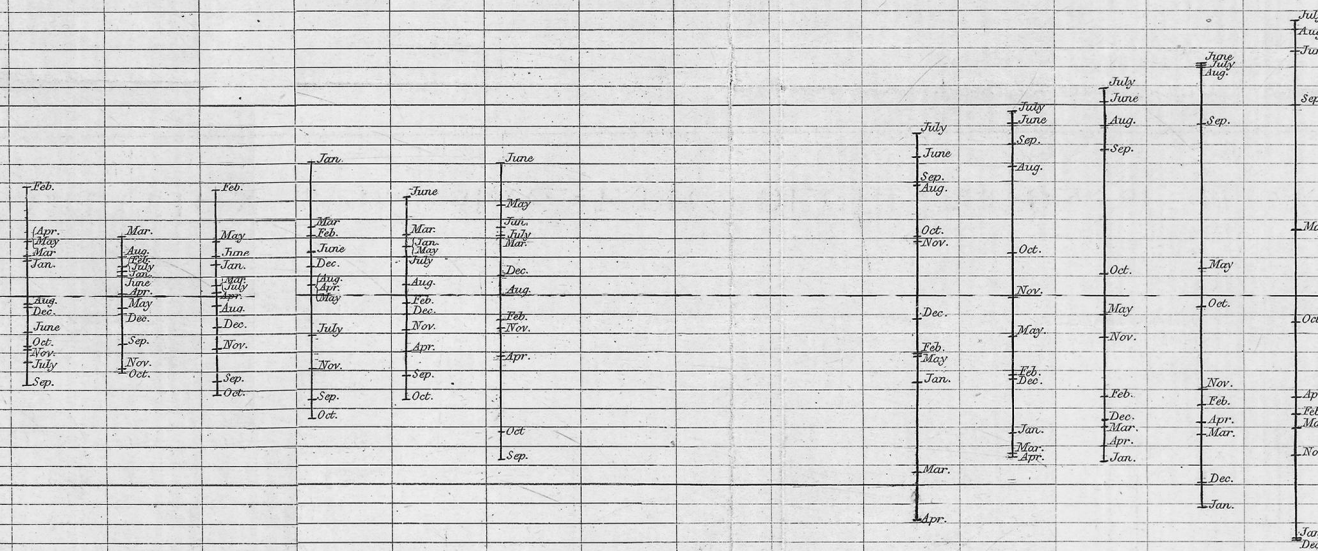 Feb.
Apr.
May
Mar
Jan.
Aug.
Dec.
June
Oct.
Nov.
July
Sep.
Mar.
Aug.
Feb.
July
Jan.
June
Apr.
May
Dec.
Sep.
Nov.
Oct.
Feb.
May
June
Jan.
Mar.
July
Apr.
Aug.
Dec.
Nov.
Sep.
Oct.
Jan.
Mar
Feb.
June
Dec.
Aug.
Apr.
May
July
Nov.
Sep.
Oct.
June
Mar.
Jan.
May
July
Aug.
Feb.
Dec.
Nov.
Apr.
Sep.
Oct.
June
May
Jan.
July
Mar.
Dec.
Aug.
Feb.
Nov.
Apr.
Oct
Sep.
July
June
Sep.
Aug.
Oct.
Nov.
Dec.
Feb.
May
Jan.
Mar.
Apr.
July
June
Sep.
Aug.
Oct.
Nov.
May.
Feb.
Dec.
Jan.
Mar.
Apr.
July
June
Aug.
Sep.
Oct.
May
Nov.
Feb.
Dec.
Mar.
Apr.
Jan.
June
July
Aug.
Sep.
May
Oct.
Nov.
Feb.
Apr.
Mar.
Dec.
Jan.
July
Aug
Jun
Sep
Ma
Oct
Ap
Feb
Ma
No
Jan
Dec